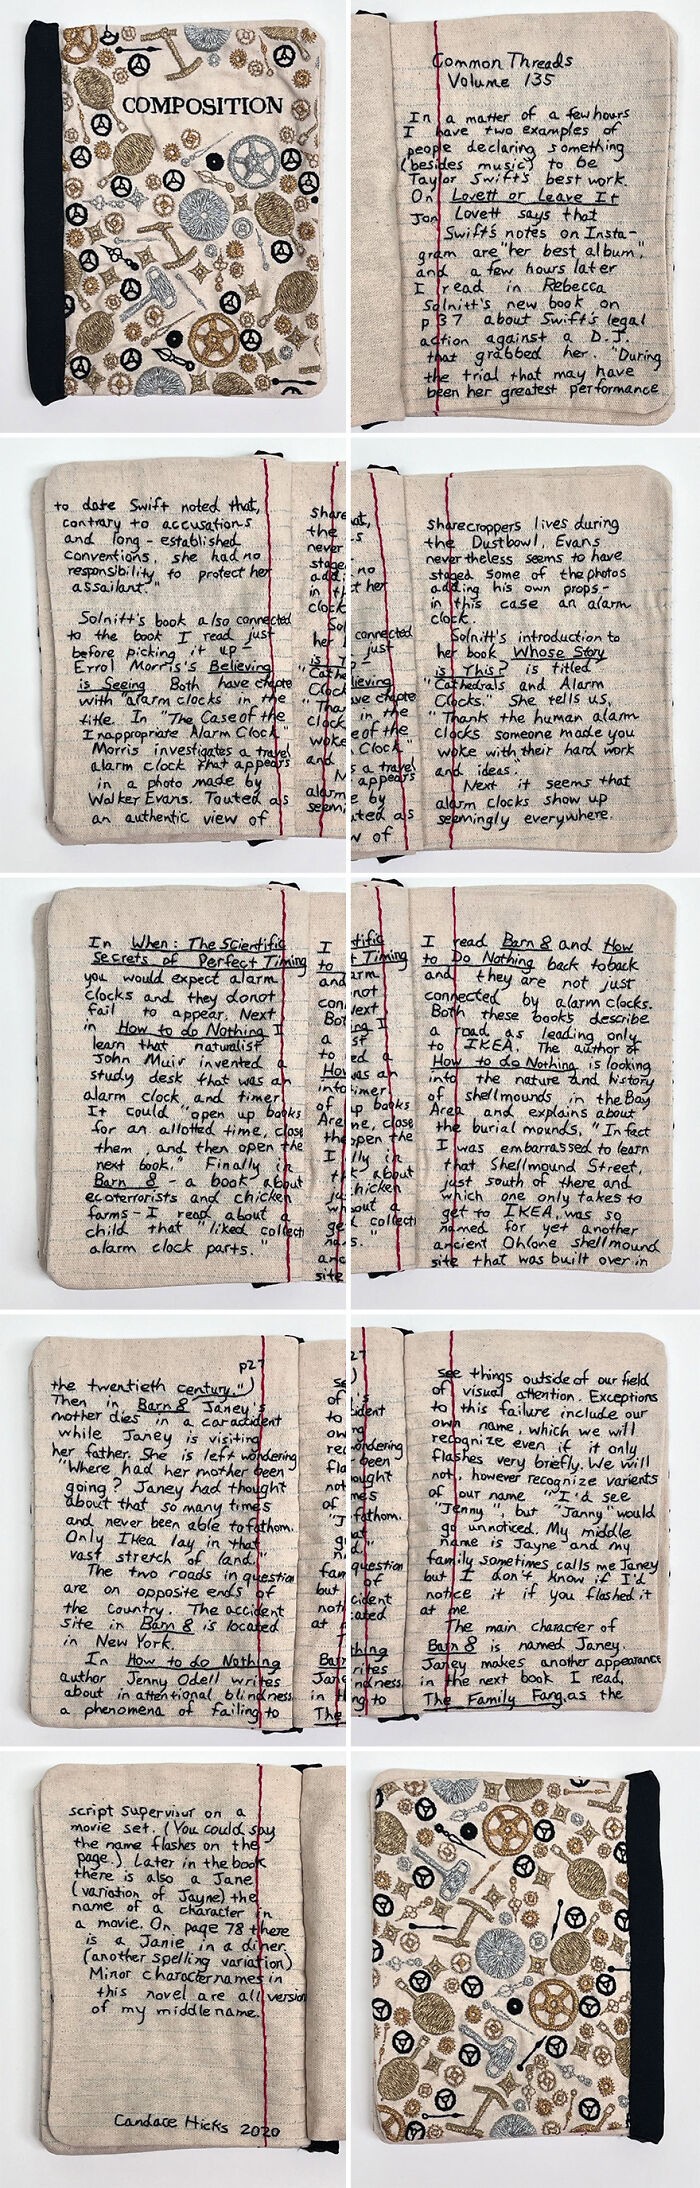 COMPOSITION
Common Threads
Volume 135
In a matter of a few hours
I have two examples of
people declaring something
(besides music) to be
Taylor Swift's best work.
On Lovett or Leave It
Jon Lovett says that
Swift's notes on Insta-
gram are "her best album",
and a few hours later
I read in Rebecca
Solnitt's new book on
p 37 about Swift's legal
action against a D.J.
that grabbed her. "During
the trial that may have
been her greatest performance
to date Swift noted that,
contrary to accusations
and long-established
conventions, she had no
responsibility to protect her
assailant."
Solnitt's book also connected
to the book I read just
before picking it up -
Errol Morris's Believing
is Seeing Both have chapte
with "alarm clocks in the
title. In "The Case of the
Inappropriate Alarm Clock"
Morris investigates a travel
alarm clock that appears
in a photo made by
Walker Evans. Touted as
an authentic view of
sharecroppers lives during
the Dustbowl, Evans
nevertheless seems to have
staged some of the photos
adding his own props-
in this case an alarm
clock.
Solnitt's introduction to
her book Whose Story
is This? is titled
"Cathedrals and Alarm
Clocks." She tells us,
"Thank the human alarm
clocks someone made you
woke with their hard work
and ideas."
Next it seems that
alarm clocks show up
seemingly everywhere.
In When: The Scientific
Secrets of Perfect Timing
you would expect alarm
clocks and they do not
fail to appear. Next
in How to do Nothing I
learn that naturalist
John Muir invented a
study desk that was an
alarm clock and timer
It could "open up books
for an allotted time, close
them, and then open the
next book." Finally in
Barn 8 - a book about
ecoterrorists and chicken
farms - I read about a
child that "liked collecti
alarm clock parts."
I read Barn 8 and How
to Do Nothing back to back
and they are not just
connected by alarm clocks.
Both these books describe
a road as leading only
to IKEA. The author of
How to do Nothing is looking
into the nature and history
of shellmounds in the Bay
Area and explains about
the burial mounds, "In fact
I was embarrassed to learn
that Shellmound Street,
just south of there and
which one only takes to
get to IKEA, was so
named for yet another
ancient Ohlone shellmound
site that was built over in
p27
the twentieth century.")
Then in Barn 8 Janey's
mother dies in a car accident
while Janey is visiting
her father. She is left wondering
"Where had her mother been
going? Janey had thought
about that so many times
and never been able to fathom.
Only IKea lay in that
vast stretch of land."
The two roads in question
are on opposite ends of
the country. The accident
site in Barn 8 is located
in New York.
In How to do Nothing
author Jenny Odell writes
about inattentional blindness
a phenomena of failing to
see things outside of our field
of visual attention. Exceptions
to this failure include our
own name, which we will
recognize even if it only
flashes very briefly. We will
not, however recognize varients
of our name. "I'd see
"Jenny", but "Janny" would
go unnoticed. My middle
name is Jayne and my
family sometimes calls me Janey
but I don't know if I'd
notice it if you flashed it
at me
The main character of
Barn 8 is named Janey.
Janey makes another appearance
in the next book I read,
The Family Fang, as the
script supervisor on a
movie set. (You could say
the name flashes on the
page.) Later in the book
there is also a Jane
(variation of Jayne) the
name of a character in
a movie. On page 78 there
is a Janie in a diner.
(another spelling variation)
Minor character names in
this novel are all version
of my middle name.
Candace Hicks 2020